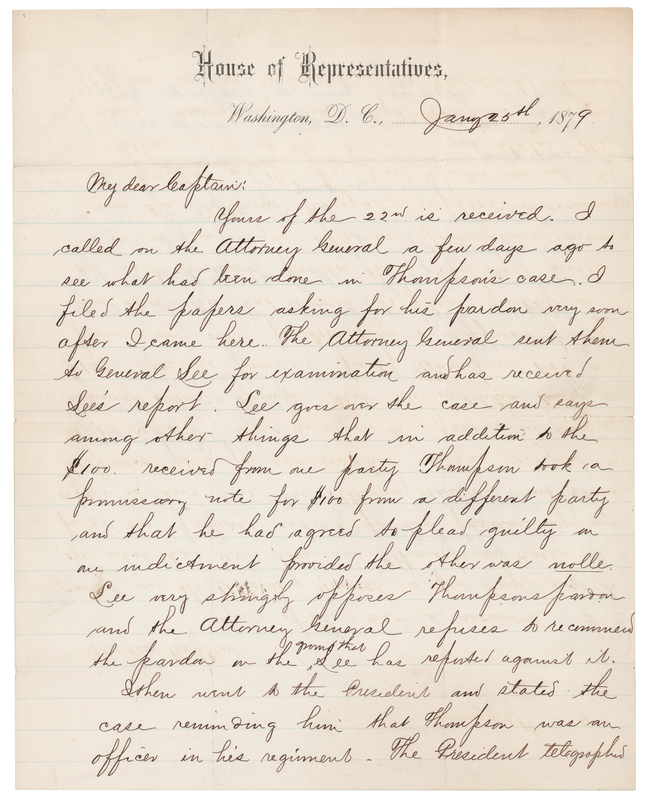 House of Representatives,
Washington, D. C., Jany 25th, 1879
My dear Captain:
Yours of the 22nd is received. I
called on the Attorney General a few days ago to
see what had been done in Thompson's case. I
filed the papers asking for his pardon very soon
after I came here. The Attorney General sent them
to General Lee for examination and has received
Lee's report. Lee goes over the case and says
among other things that in addition to the
$100. received from one party Thompson took a
promissory note for $100 from a different party
and that he had agreed to plead guilty on
one indictment provided the other was nolle.
Lee very strongly opposes Thompsons pardon
and the Attorney General refuses to recommend
the pardon on the ground that Lee has reported against it.
I then went to the President and stated the
case reminding him that Thompson was an
officer in his regiment - The President telegraphed